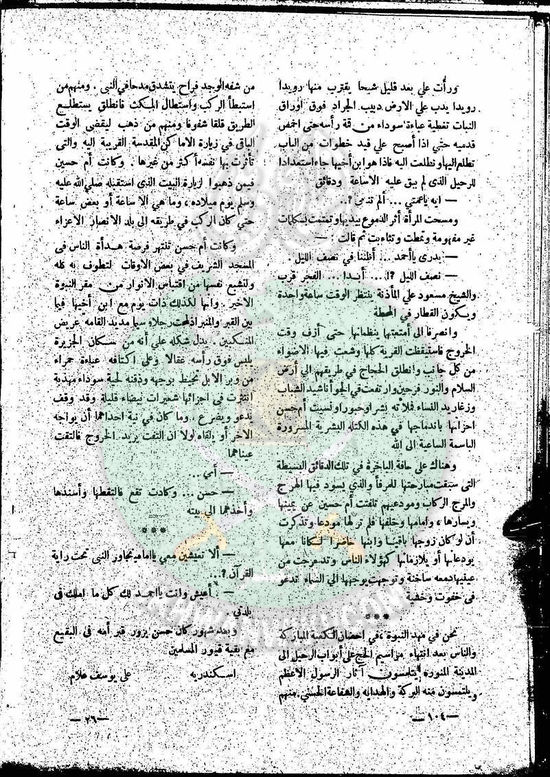 ورأت على بعد قليل شبحا يقترب منها رويدا
رويدا يدب على الارض دبيب الجراد فوق أوراق
النبات تغطيه عباءة سوداء من قمة رأسه حتى اخمص
قدميه حتى اذا أصبح على قيد خطوات من الباب
تطلع اليها وتطلعت اليه فاذا هو ابن أخيها جاء استعدادا
للرحيل الذى لم يبق عليه الا ساعة ودقائق
— ايه ياعمتى ... ألم تنمى ؟..
ومسحت المرأة أثر الدموع بيديها وتمتمت بكلمات
غير مفهومة وتمطت وتثاءبت ثم قالت : —
— بدرى ياأحمد ... أظننا فى نصف الليل .
— نصف الليل ؟! ... أبدا ... الفجر قرب
والشيخ مسعود على المأذنة ينتظر الوقت ساعة واحدة
ويكون القطار فى المحطة
وانصرفا الى أمتعتها ينظمانها حتى أزف وقت
الخروج فاستيقظت القرية كلها وشعت فيها الاضواء
من كل جانب وانطلق الحجاج فى طريقهم الى أرض
السلام والنور فرحين وارتفعت فى الجو أناشيد الشباب
وزغاريد النساء فملأته بشرا وحبورا ونسيت أم حسن
احزانها باندماجها فى هذه الكتلة البشرية المسرورة
الباسمة الساعية الى الله
وهناك على حافة الباخرة فى تلك الدقائق البسيطة
التى سبقت مبارحتها للمرفأ والذى يسود فيها الهرج
والمرج الركاب ومودعيهم تلفتت أم حسين عن يمينها
ويسارها ، وأمامها وخلفها فلم تر لها مودعا وتذكرت
أن لو كان زوجها باقيا وابنها حاضرا لكانا معها
يودعانها أو يلازمانها كهؤلاء الناس وتدحرجت من
عينيها دمعة ساخنة وتوجهت بوجهها الى السماء تدعو
فى خفوت وخشية
***
نحن فى مهد النبوة ، فى احضان الكعبة المباركة
والناس بعد انتهاء مراسيم الحج على أبواب الرحيل الى
المدينة المنورة يتلمسون آثار الرسول الأعظم
ويلتمسون منه البركة والهداية والشفاعة الحسنى منهم
— ١٠٤ —
من شفه الوجد فراح يتشدق مدحا فى النبى . ومنهم من
استبطأ الركب واستطال المكث فانطلق يستطلع
الطريق قلقا شغوفا ومنهم من ذهب ليقضى الوقت
الباقى فى زيارة الاماكن المقدسة القريبة اليه والتى
تأثرت بها نفسه أكثر من غيرها . وكانت أم حسين
فيمن ذهبوا لزيارة البيت الذى استقبله صلى الله عليه
وسلم يوم ميلاده ، وما هى الا ساعة أو بعض ساعة
حتى كان الركب فى طريقه الى بلد الانصار الاعزاء
وكانت أم حسن تنتهز فرصة هدأة الناس فى
المسجد الشريف فى بعض الاوقات لتطوف به كله
ولتشبع نفسها من اقتباس الانوار من مقر النبوة
الاخير . وانها لكذلك ذات يوم مع ابن أخيها فيما
بين القبر والمنبر اذ لمحت رجلا وسيما مديد القامه عريض
المنكبين . يدل شكله على أنه من سكان الجزيرة
يلبس فوق رأسه عقالا وعلى اكتافه عباءة حمراء
من وبر الابل تحيط بوجهه وذقنه لحية سوداء مهذبة
انتثرت فى اجزائها شعيرات بيضاء قليلة وقد وقف
يدعو ويضرع . وما كان فى نية احداهما أن يواجه
الآخر أو يلقاه لولا ان التفت يريد الخروج فالتقت
عيناهما
— أمى ..
— حسن ... وكادت تقع فالتقطها وأسندها
وأخذهما الى بيته
***
— ألا تعيشين معى ياامايه بجاور النبى تحت راية
القرآن ؟..
— أعيش وانت ياأحمد لك كل ما املك فى
بلدتى .
وبعد شهور كان حسن يزور قبر أمه فى البقيع
مع بقية قبور المسلمين
اسكندرية على يوسف علام
— ٢٦ —